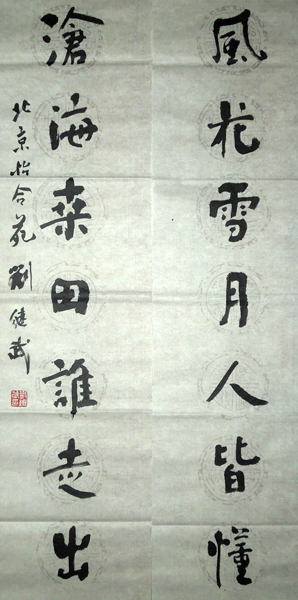 風花雪月人皆懂
滄海桑田誰走出
北京怡合苑劉健武